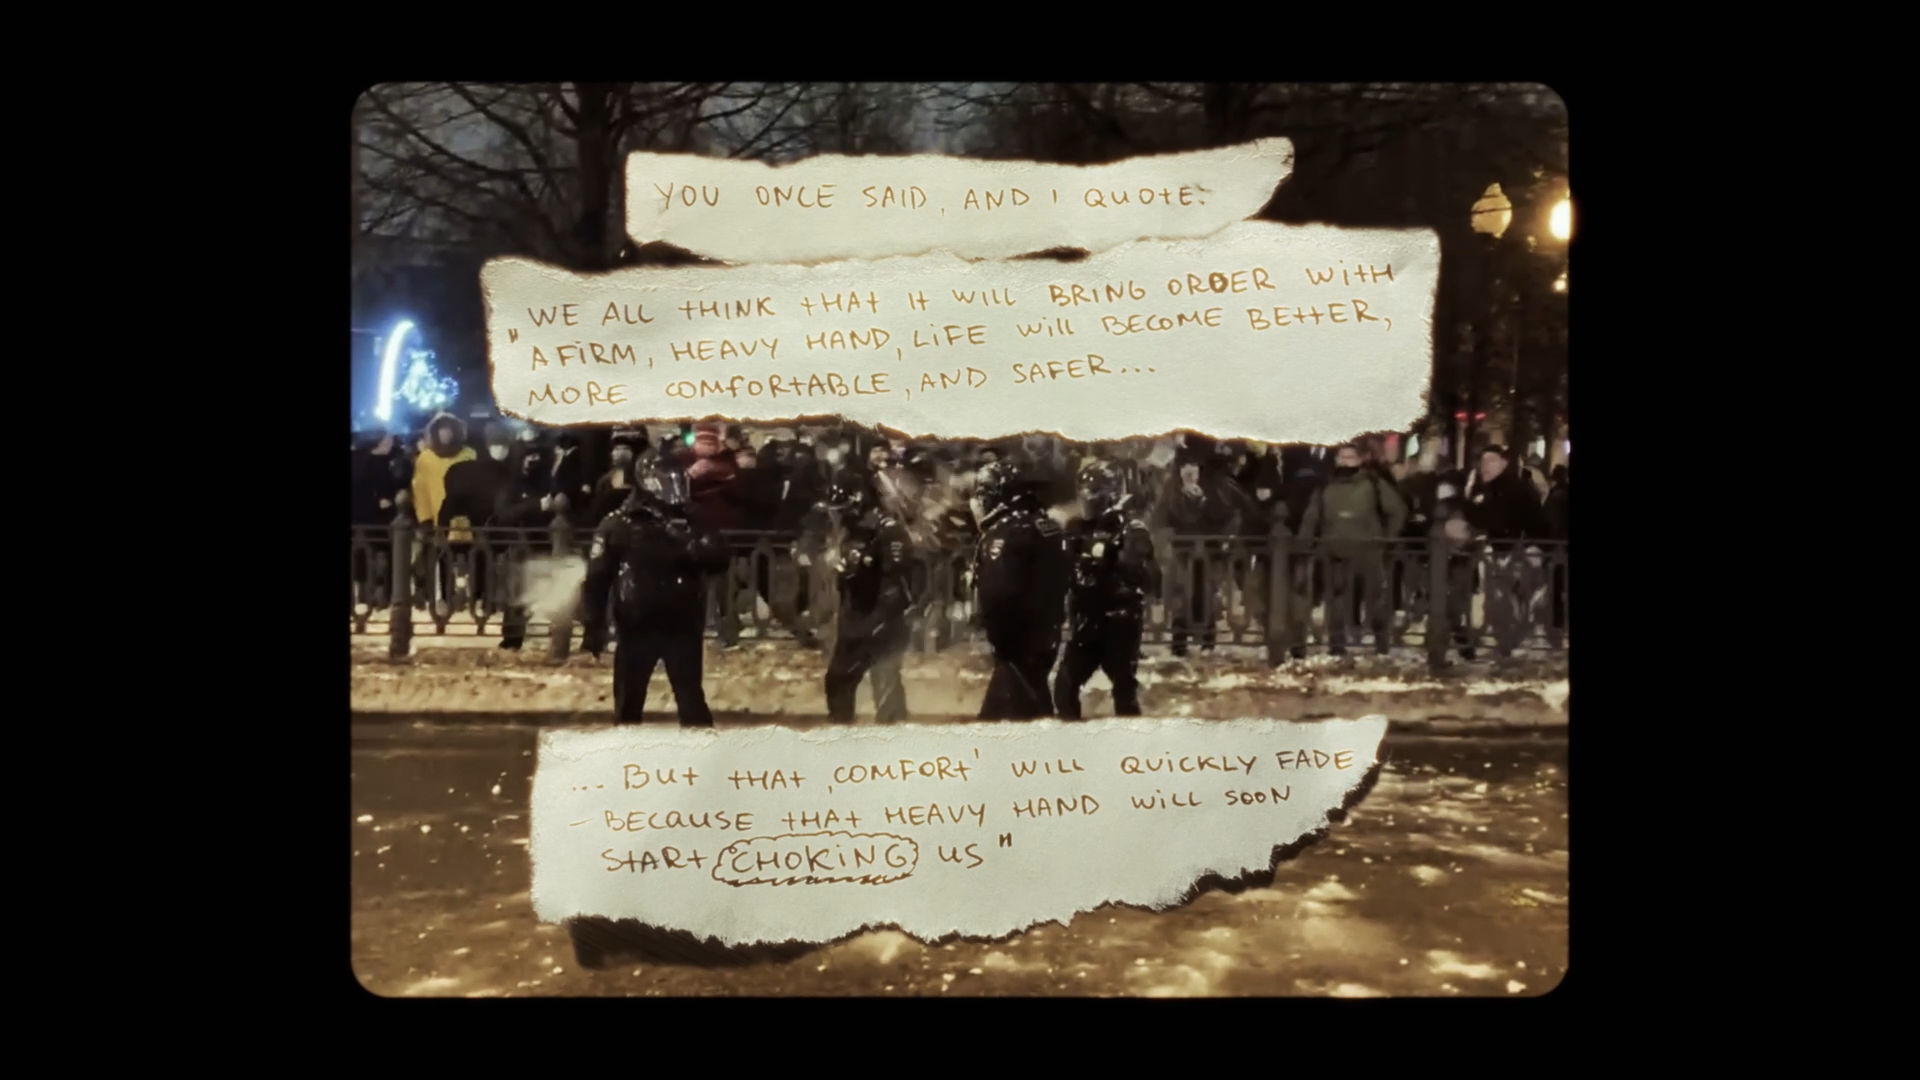 YOU ONCE SAID, AND I QUOTE:
„WE ALL THINK THAT IT WILL BRING ORDER WITH
A FIRM, HEAVY HAND, LIFE WILL BECOME BETTER,
MORE COMFORTABLE, AND SAFER...
... BUT THAT ‚COMFORT' WILL QUICKLY FADE
– BECAUSE THAT HEAVY HAND WILL SOON
START CHOKING US"